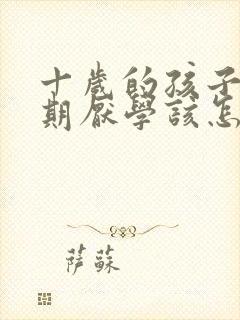 十歲的孩子
期厭學該怎
萨蘇